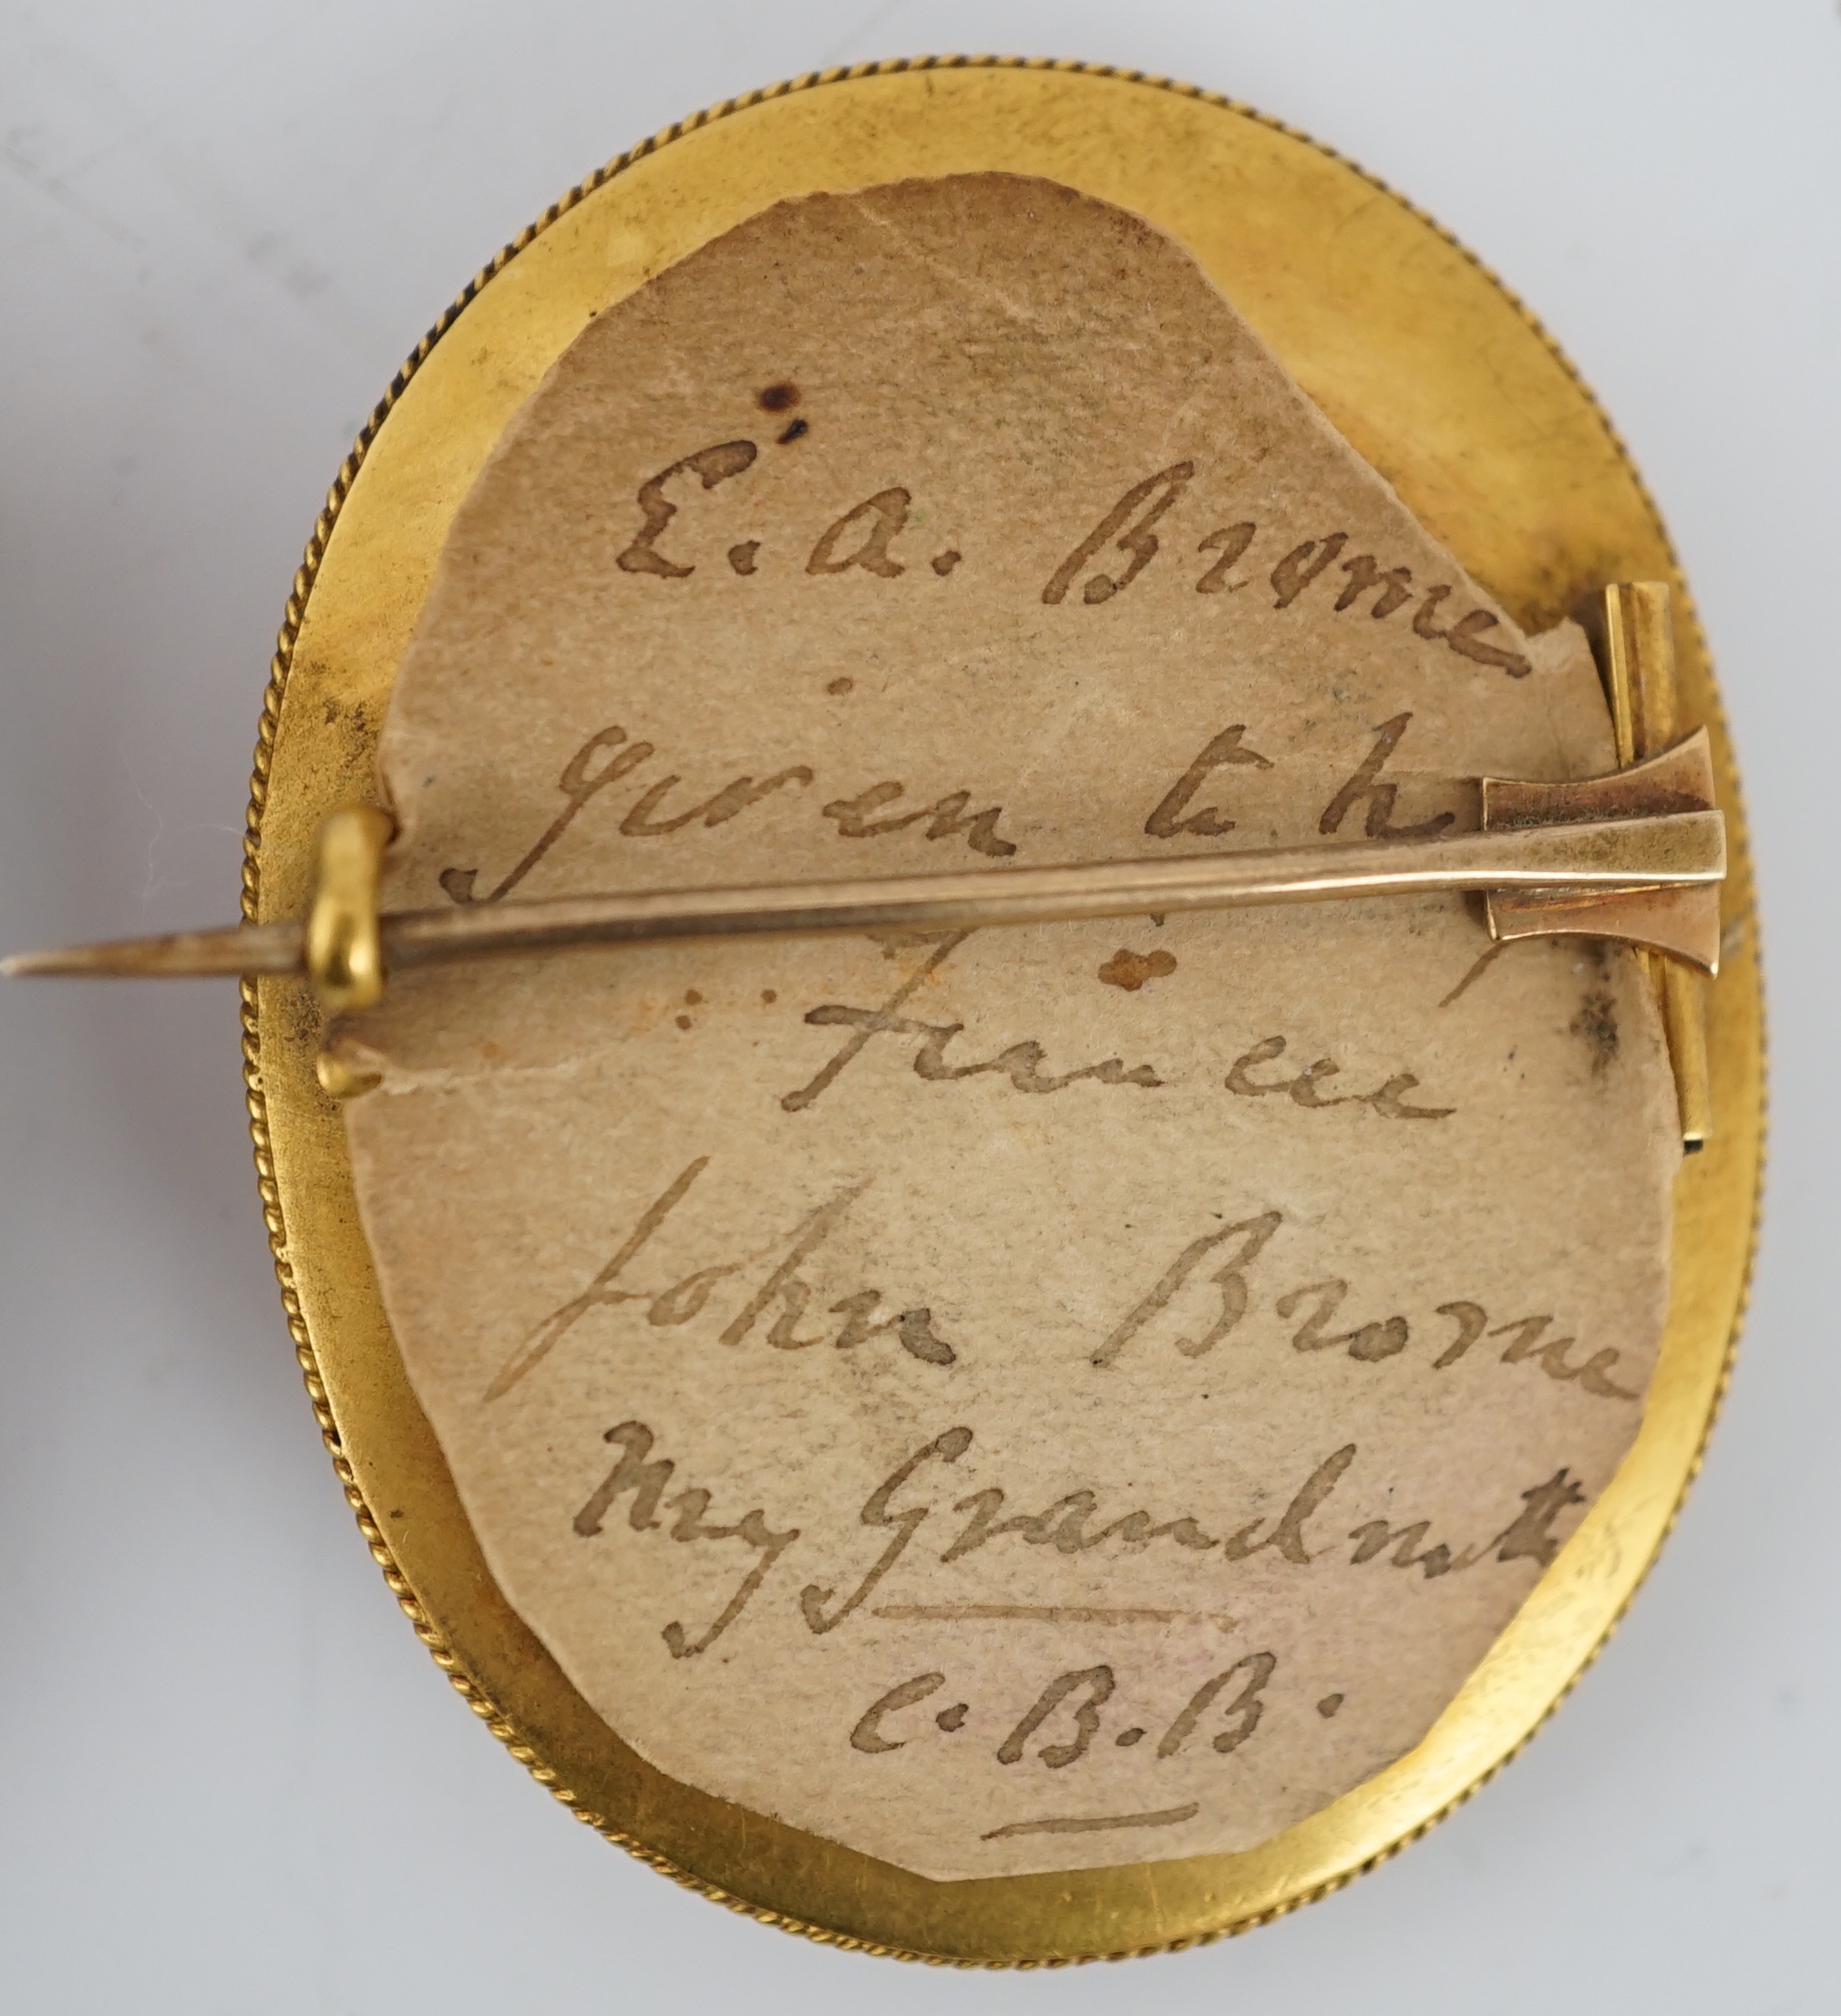 E. A. Brome
given to h
Fiancée
John Brome
My Grandmoth
C. B. B.